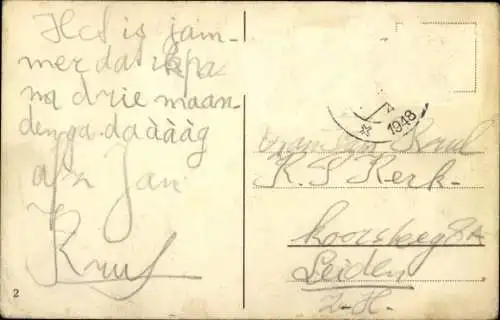 Het is jam-
mer dat ik pa
na drie maan-
den ga daàààg
afz Jan
Krul
2
1948
Krul
K. S Kerk-
hoorsteeg 8A
Leiden
Z-H.